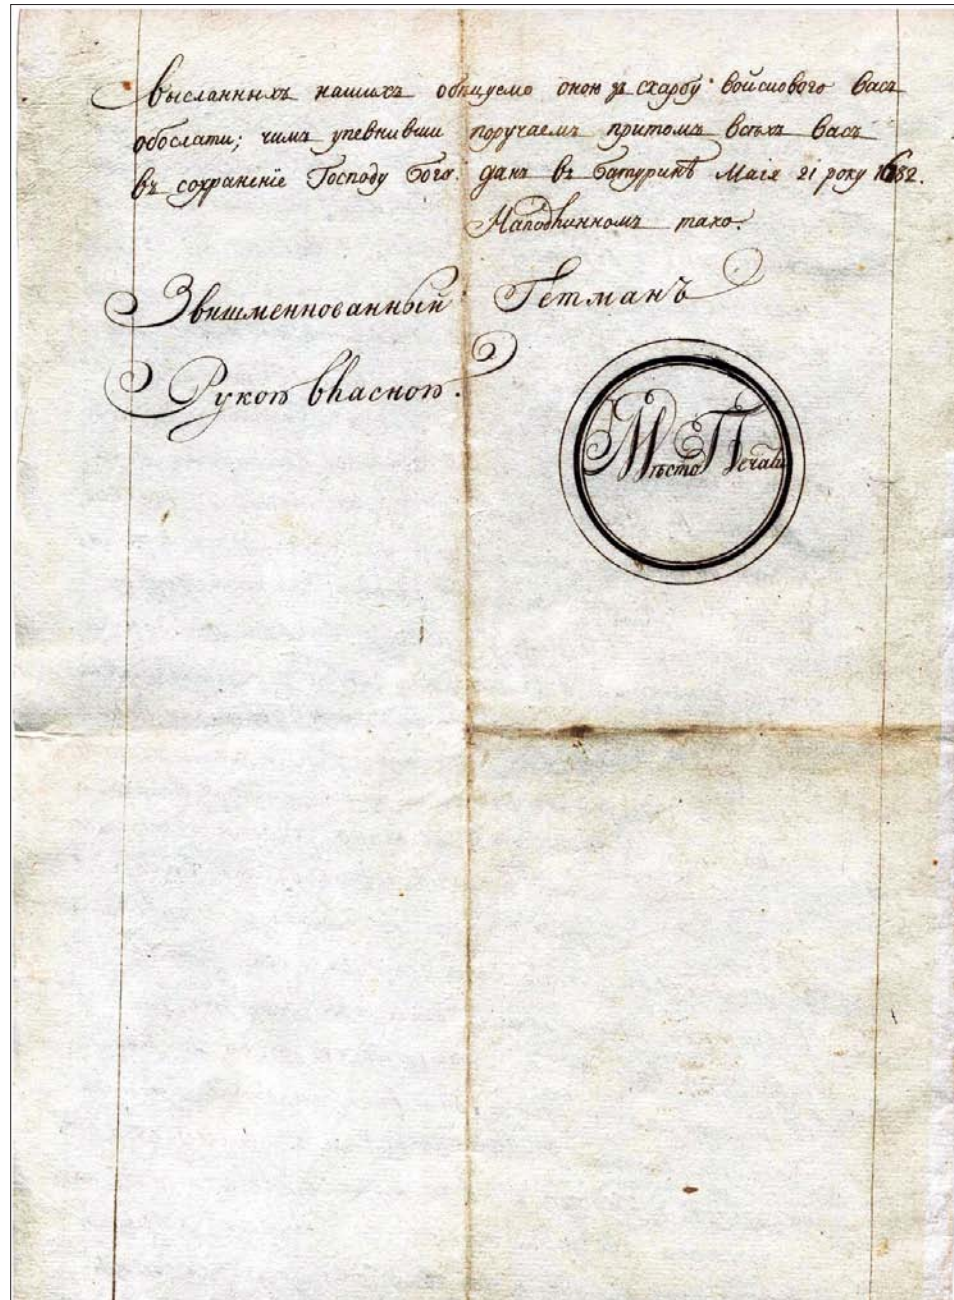 высланныхъ нашихъ обѣцуемо оною зъ скарбу войскового васъ
обослати; чимъ упевнивши поручаемъ притомъ всѣхъ васъ
въ сохраненіе Господу Богу. данъ въ Батуринѣ Маія 21 року 1682.
Наподлинномъ тако.
Звишменнованный Гетманъ
Рукою власною.
Мѣсто Печати